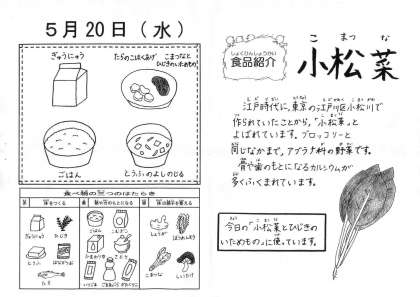 5月20日（水）
ぎゅうにゅう
たらのこはくあげ
こまつなと
ひじきのいためもの
ごはん
とうふのよしのじる
食べ物の三つのはたらき
体をつくる
ぎゅうにゅう
ひじき
とうふ
たら
ごはん
さとう
こまつな
しいたけ
しょくひんしょうかい
食品紹介
こまつな
小松菜
江戸時代に、東京の江戸川区小松川で
作られていたことから、“小松菜”と
よばれています。ブロッコリーと
同じなかまで、アブラナ科の野菜です。
骨や歯のもとになるカルシウムが
多くふくまれています。
今日の“小松菜とひじきの
いためもの”に使っています。